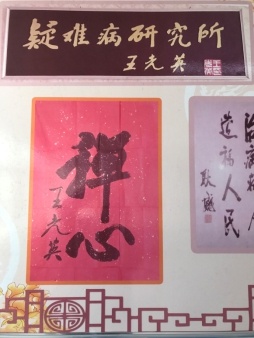 疑难病研究所
王光英
禅心
王光英
治病救人
造福人民